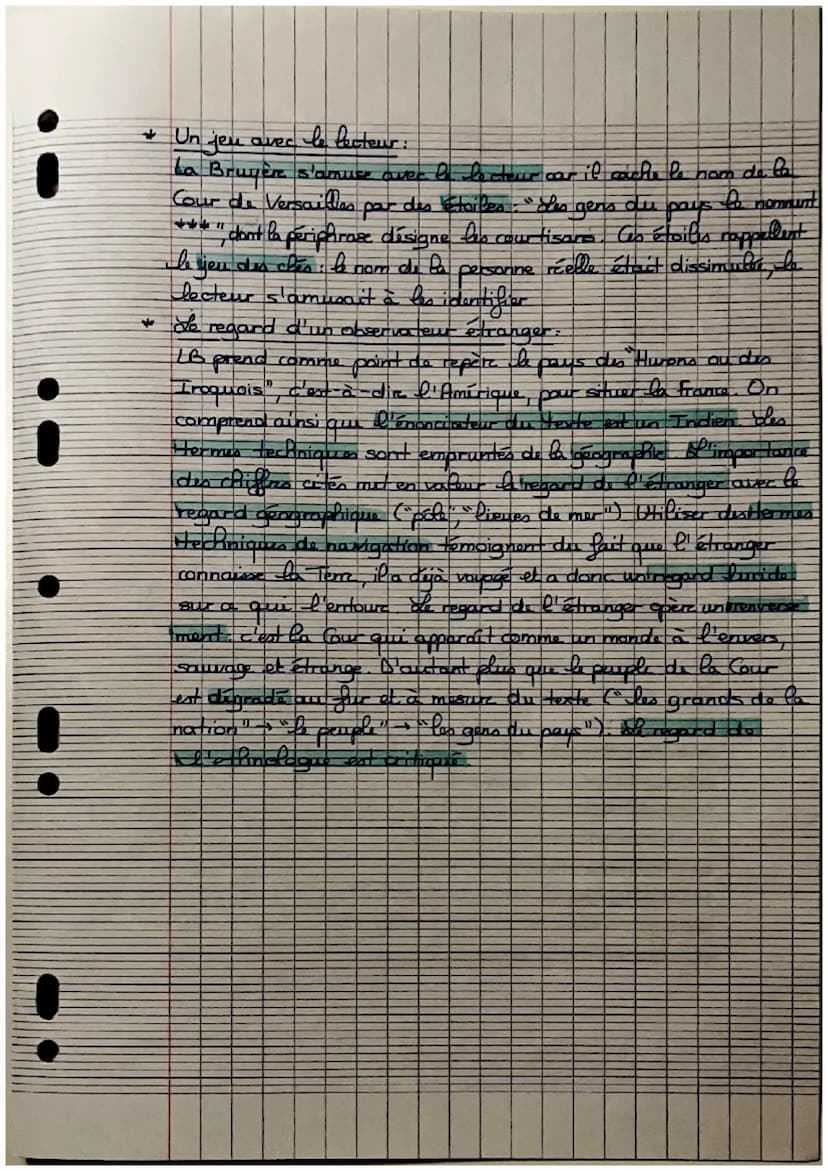 * Un jeu avec le lecteur :
La Bruyère s'amuse avec le lecteur car il cache le nom de la
Cour de Versailles par des étoiles : "Les gens du pays le nomment
***", dont la périphrase désigne les courtisans. Ces étoiles rappellent
le jeu des clés : le nom de la personne réelle était dissimulée, le
lecteur s'amusait à les identifier
* Le regard d'un observateur étranger :
LB prend comme point de repère le pays des "Hurons ou des
Iroquois", c'est-à-dire l'Amérique, pour situer la France. On
comprend ainsi que l'énonciateur du texte est un Indien. Les
termes techniques sont empruntés de la géographie. L'importance
des chiffres cités met en valeur le regard de l'étranger avec le
regard géographique ("pôle", "lieues de mer") Utiliser des termes
techniques de navigation témoignent du fait que l'étranger
connaisse la Terre, il a déjà voyagé et a donc un regard lucide
sur ce qui l'entoure. Le regard de l'étranger opère un renverse
ment : c'est la Cour qui apparaît comme un monde à l'envers,
sauvage et étrange. D'autant plus que le peuple de la Cour
est dégradé au fur et à mesure du texte ("les grands de la
nation" → "le peuple" → "les gens du pays"). Le regard de
l'ethnologue est critiqué.